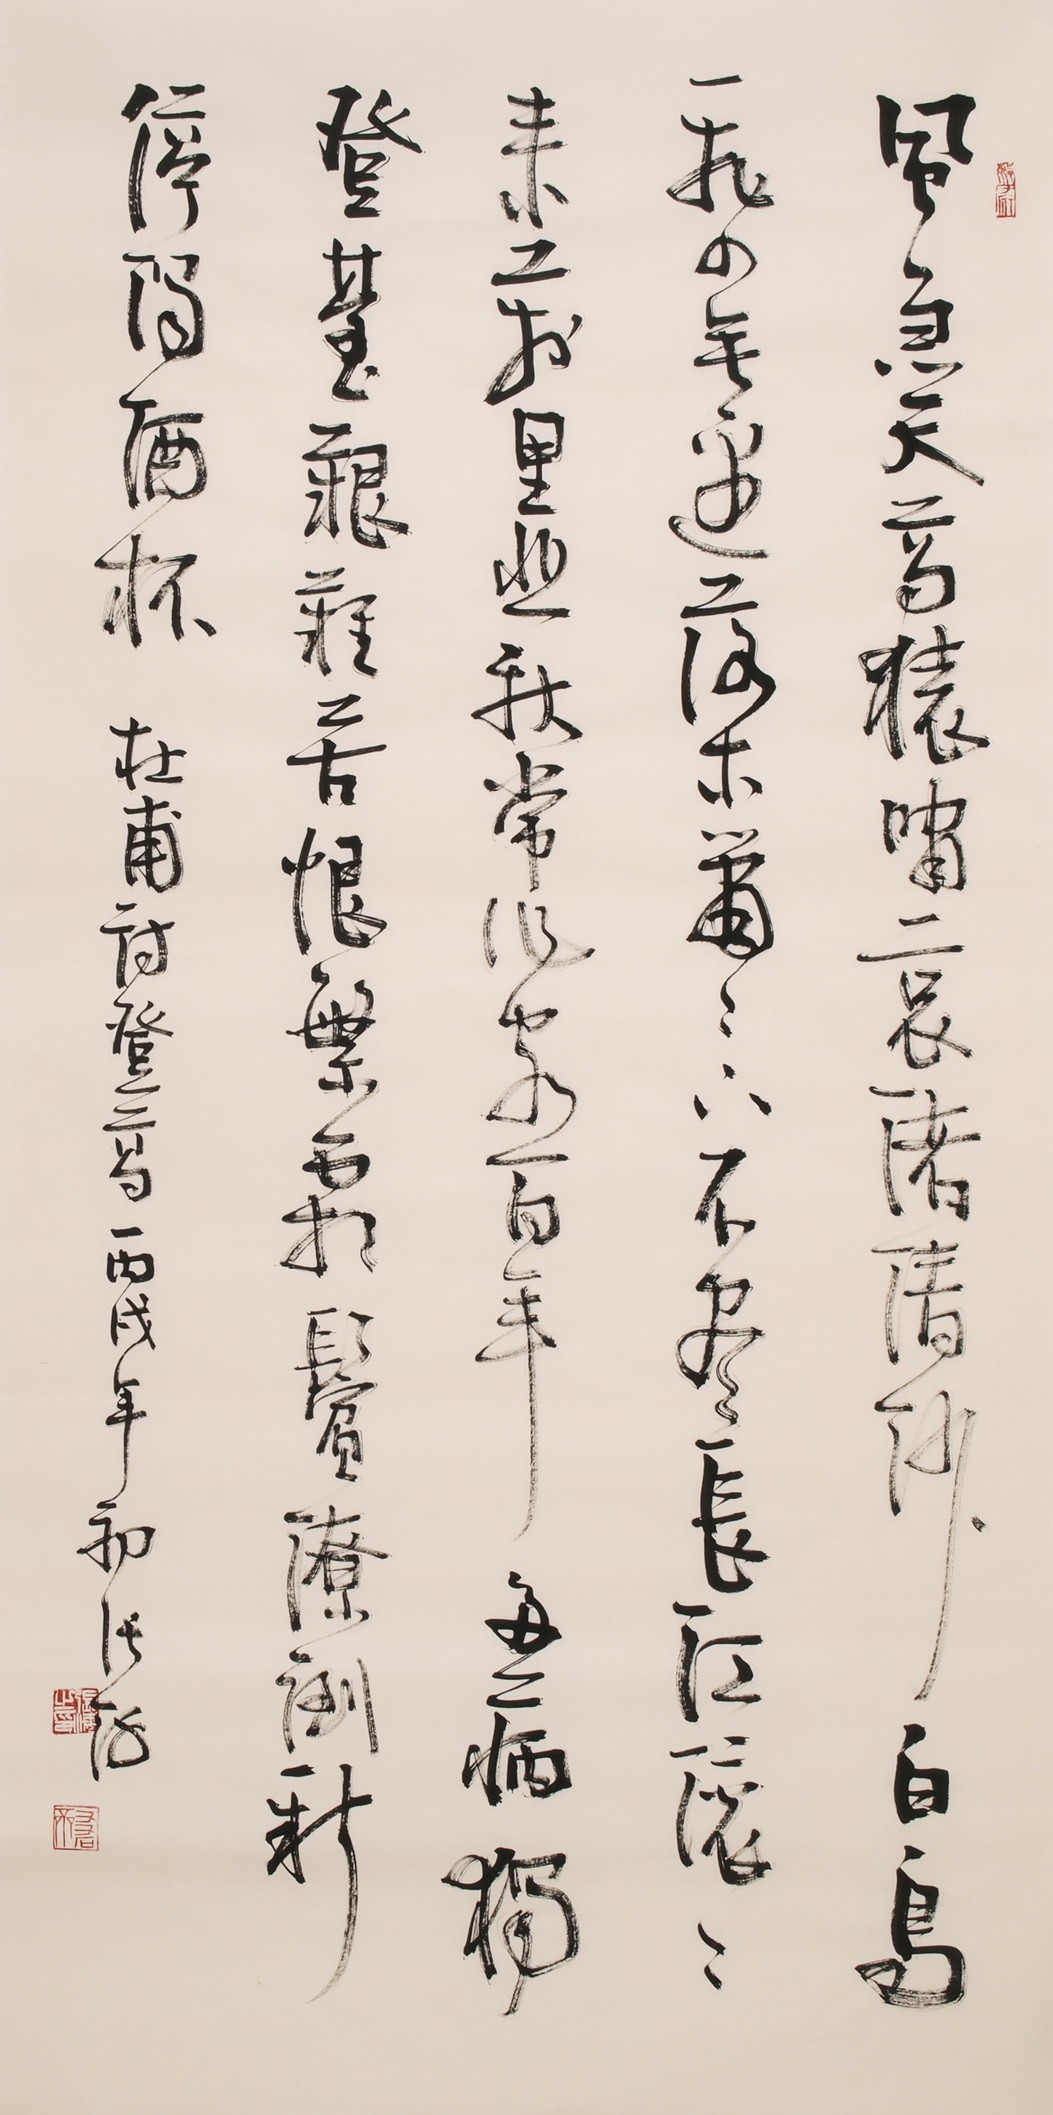 風急天高猿嘯哀渚清沙白鳥
飛回無邊落木蕭〻下不盡長江滾〻
来万里悲秋常作客百年多病獨
登臺艱難苦恨繁霜鬢潦倒新
停濁酒杯
杜甫詩登高丙戌年初張海